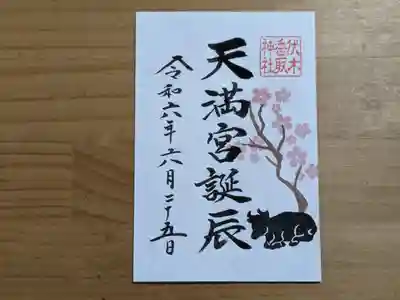 伏木
香取
神社
天満宮誕辰
令和六年六月二十五日